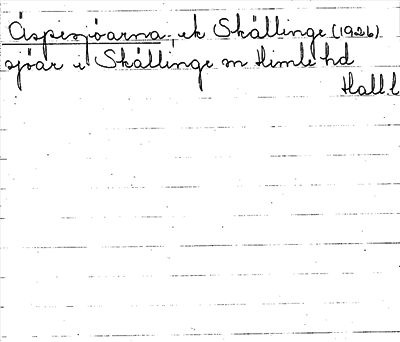 Åspesjöarna, ek Skällinge (1926)
sjöar i Skällinge sn Himle hd
Hall l